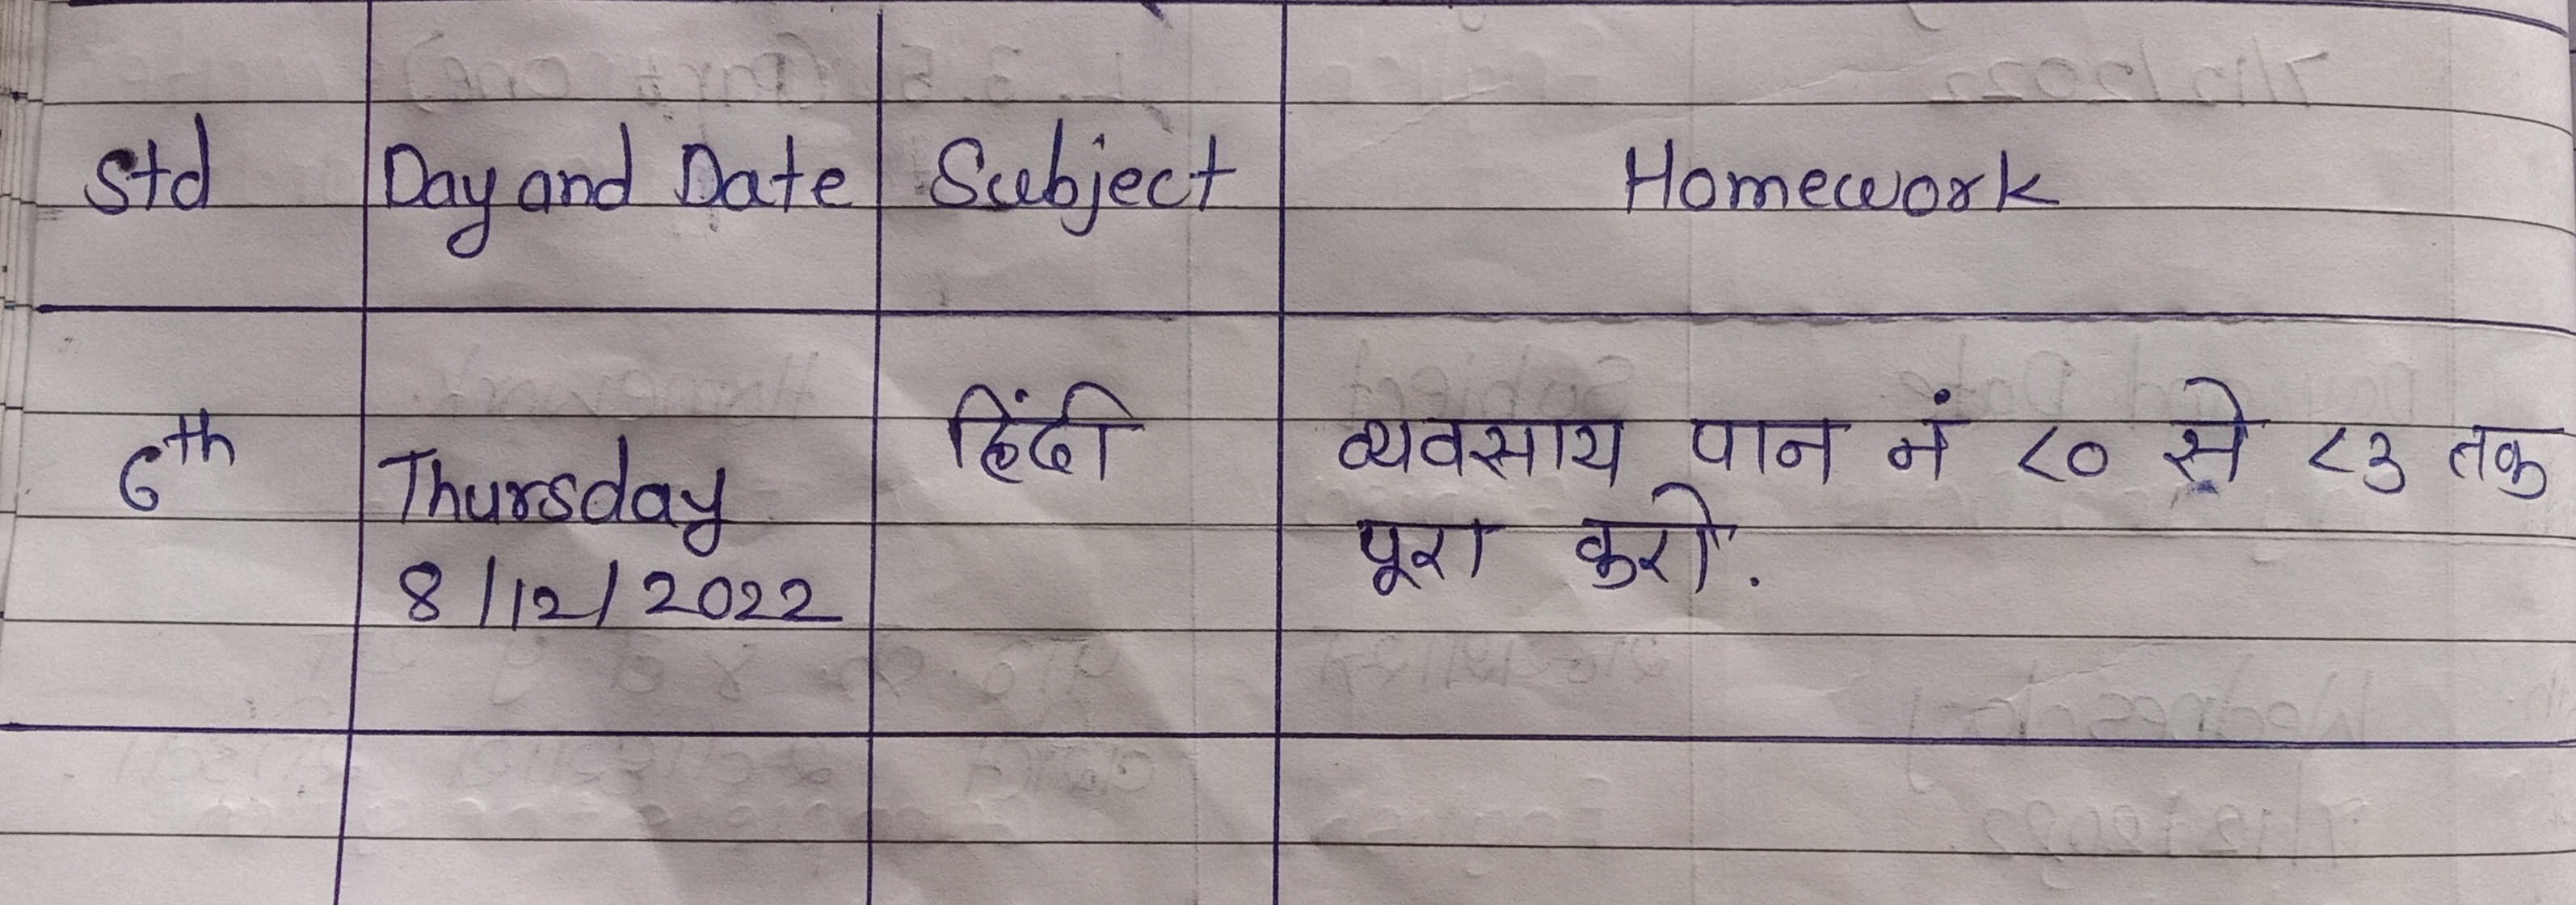 Std Day and Date Subject Homework
6th Thursday हिंदी व्यवसाय पान नं ८० से ८३ तक
8/12/2022 पूरा करो.